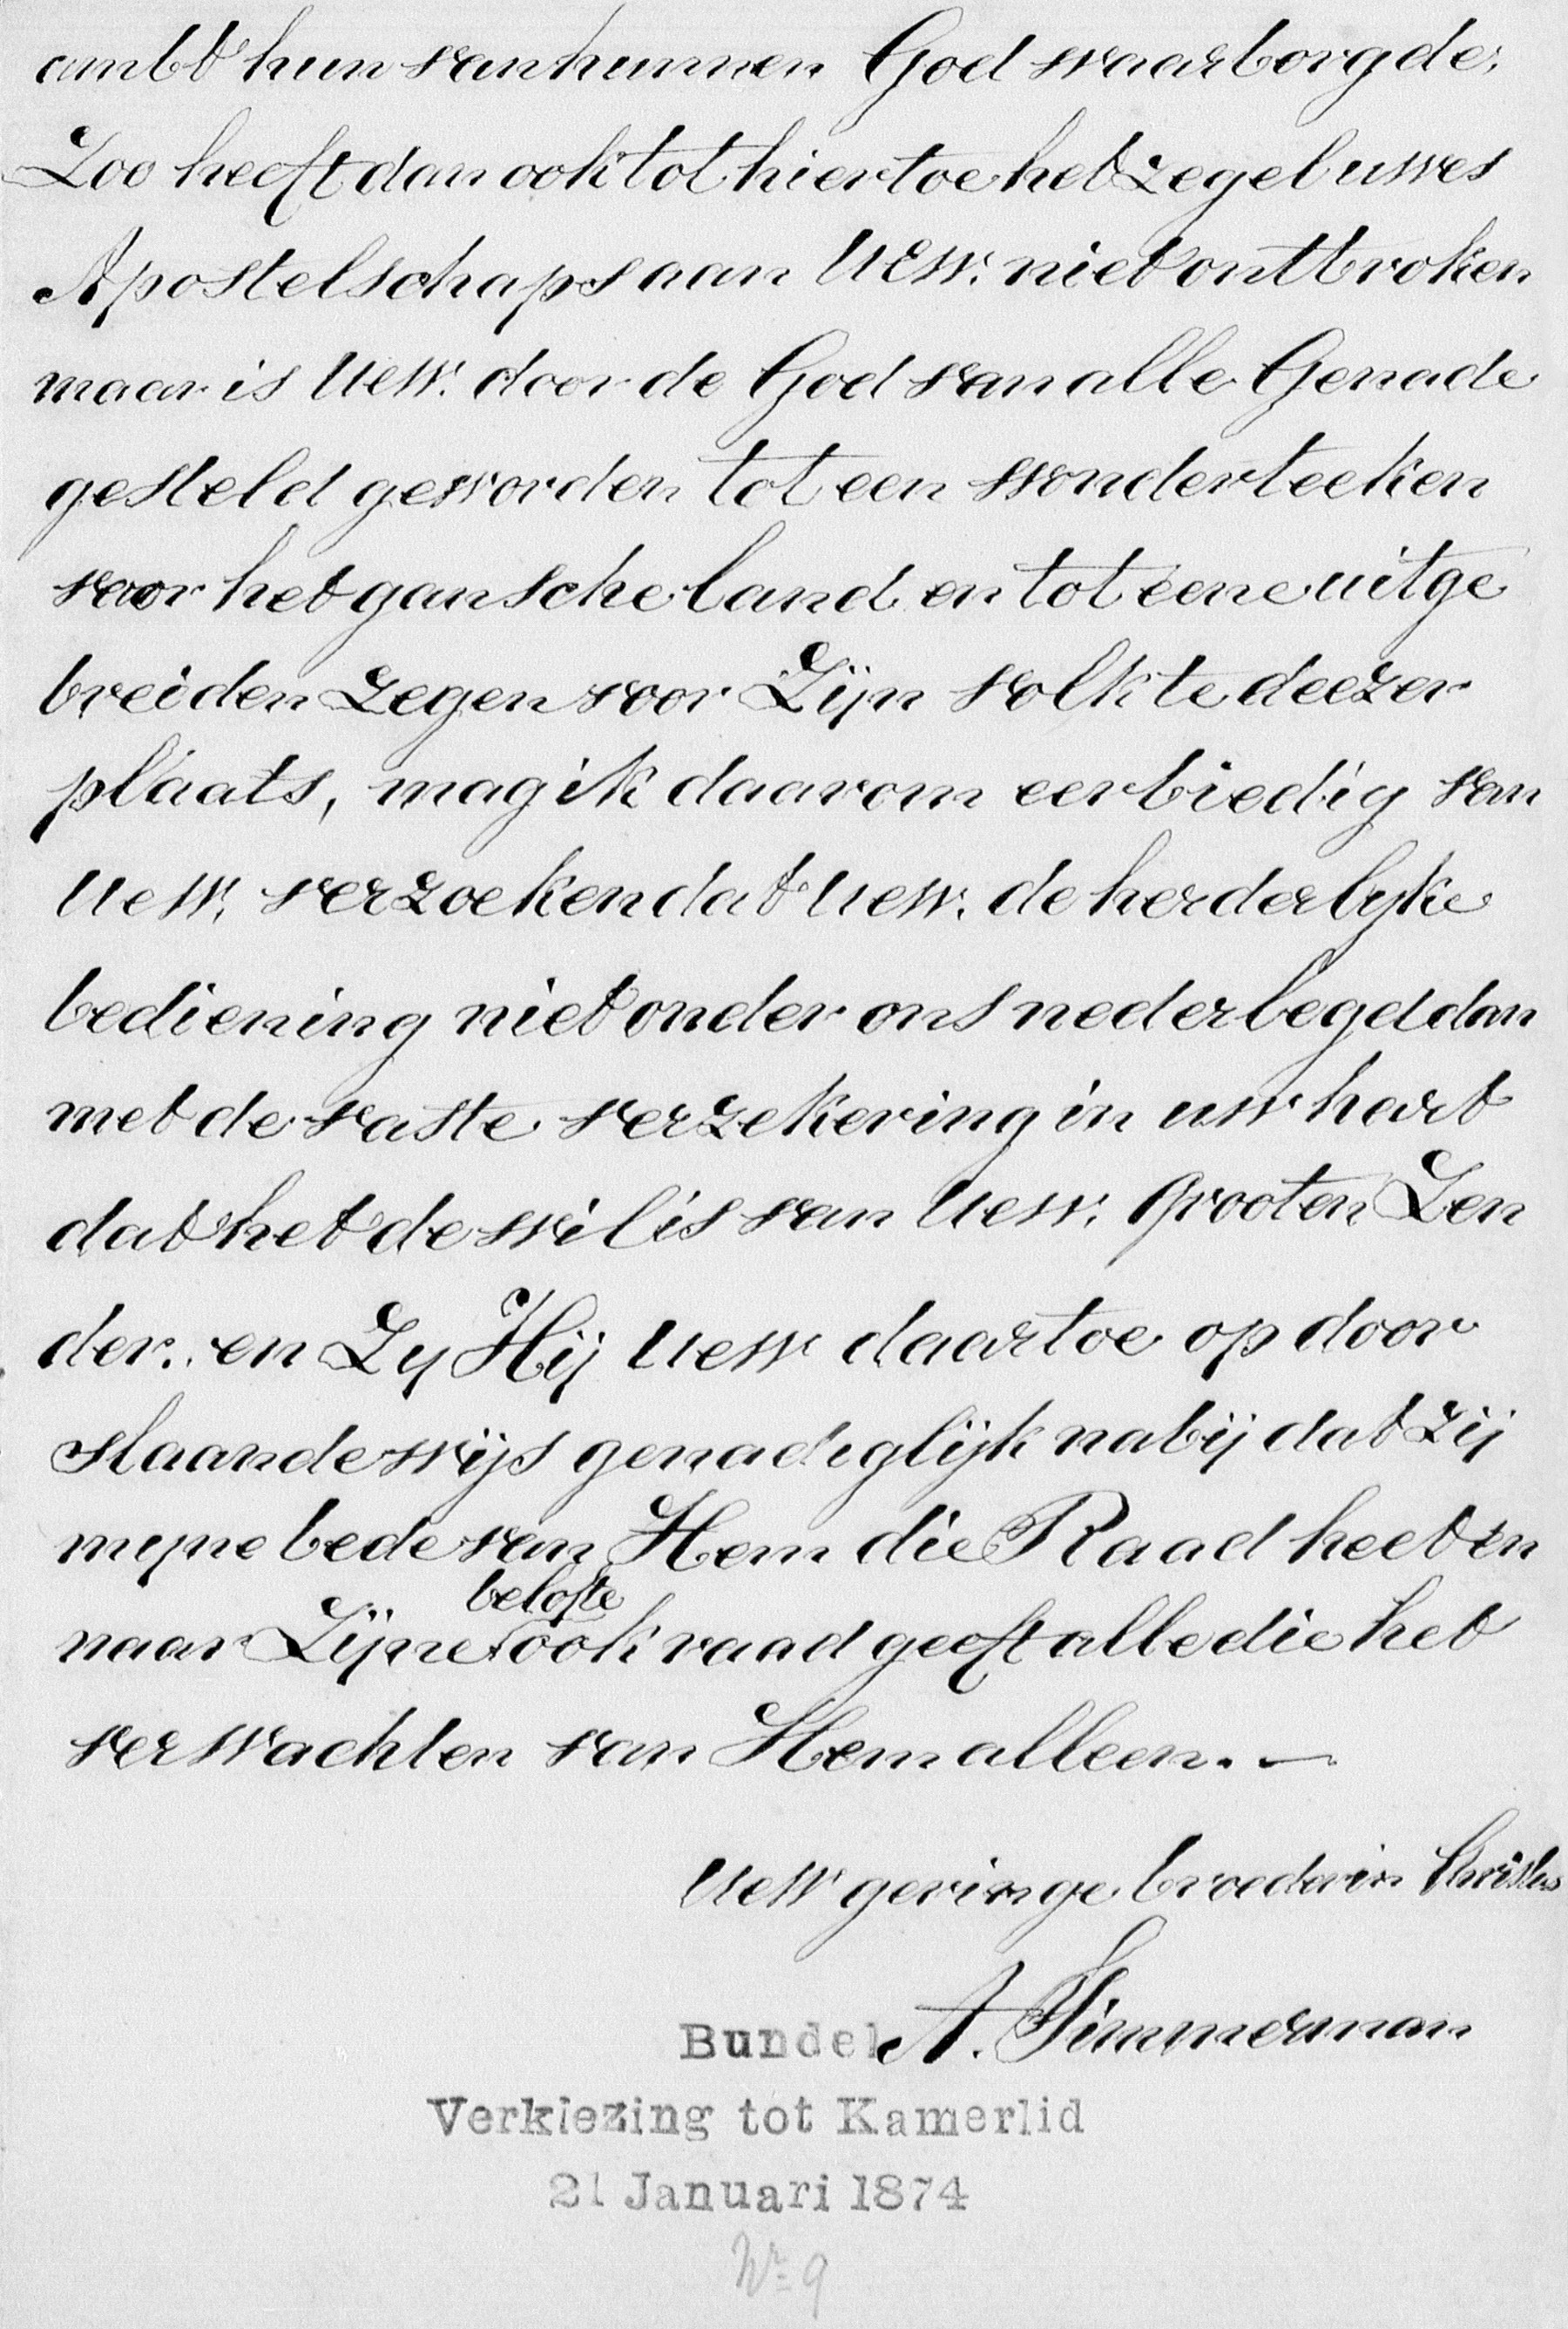 ambt hun van hunnen God waarborgde;
Zoo heeft dan ook tot hiertoe het zegel uwes
Apostelschaps aan UEW. niet onttbroken
maar is UeW. door de God van alle Genade
gesteld geworden tot een wonderteeken
voor het gansche land en tot eene uitge
breiden zegen voor Zijn volk te deezer
plaats, mag ik daarom eerbiedig van
UeW. verzoeken dat UeW. de herderlyke
bediening niet onder ons nederlegd dan
met de vaste verzekering in uw hart
dat het de wil is van UeW. Grooten Zen
der. en Zy Hij UeW daartoe op door
slaande wijs genadiglijk nabij dat zij
myne bede van Hem die Raad heet en
belofte
naar Zijne ook raad geeft alle die het
verwachten van Hem alleen. —
UeW geringe broeder in Christus
A. Timmerman
Bundel
Verkiezing tot Kamerlid
21 Januari 1874
No 9